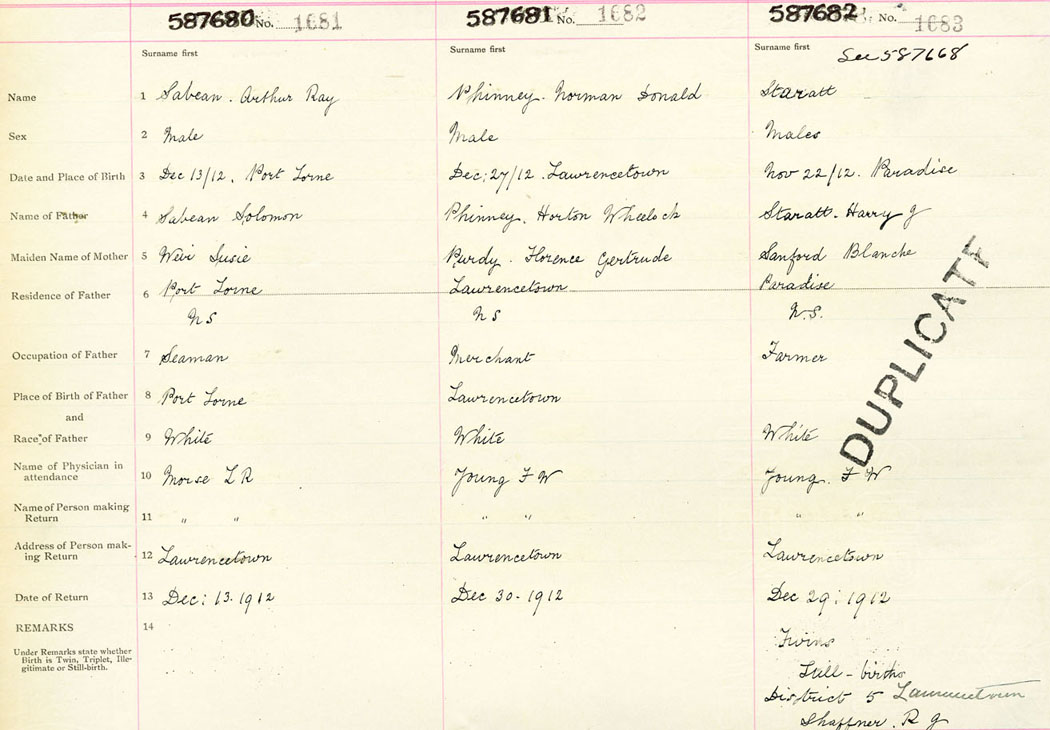 587680 No. 1681 587681 No. 1682 587682 No. 1683
Surname first Surname first Surname first See 587668
Name 1 Sabean. Arthur Ray Phinney. Norman Donald Staratt
Sex 2 Male Male Males
Date and Place of Birth 3 Dec 13/12. Port Lorne Dec: 27/12. Lawrencetown Nov 22/12. Paradise
Name of Father 4 Sabean Solomon Phinney. Horton Wheelock Staratt. Harry J
Maiden Name of Mother 5 Weir Susie Purdy. Florence Gertrude Sanford Blanche
Residence of Father 6 Port Lorne Lawrencetown Paradise
N S N S N.S.
Occupation of Father 7 Seaman Merchant Farmer
Place of Birth of Father 8 Port Lorne Lawrencetown
and
Race of Father 9 White White White
DUPLICATE
Name of Physician in
attendance 10 Morse L R Young F W Young. F W
Name of Person making
Return 11 " " " " " "
Address of Person mak-
ing Return 12 Lawrencetown Lawrencetown Lawrencetown
Date of Return 13 Dec: 13. 1912 Dec 30. 1912 Dec 29: 1912
REMARKS 14
Under Remarks state whether
Birth is Twin, Triplet, Ille-
gitimate or Still-birth.
Twins
Still-births
District 5 Lawrencetown
Shaffner. R J